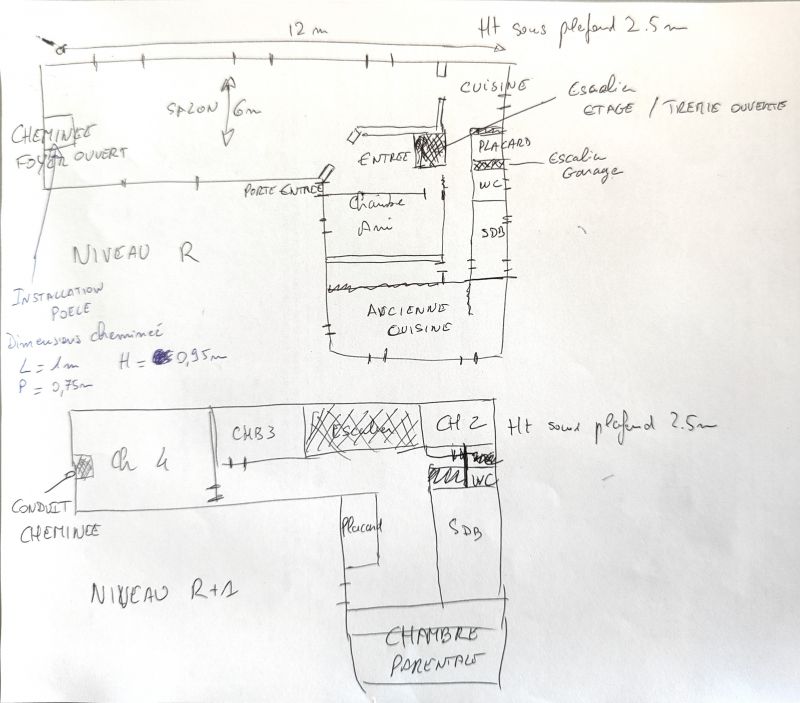 12 m
Ht sous plafond 2.5m
CUISINE
Escalier
ETAGE / TREMIE OUVERTE
SALON 6m
CHEMINEE
FOYER OUVERT
ENTREE
PLACARD
Escalier
Garage
WC
PORTE ENTREE
Chambre
Ami
SDB
NIVEAU R
INSTALLATION
POELE
ANCIENNE
CUISINE
Dimensions cheminée
L = 1m H = 0,95m
P = 0,75m
Ch 4
CHB3
Escalier
CH 2
Ht sous plafond 2.5m
WC
CONDUIT
CHEMINEE
Placard
SDB
NIVEAU R+1
CHAMBRE
PARENTALE